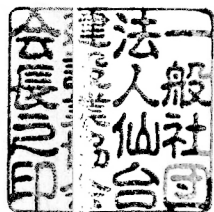 一般社団
法人仙台
建
会長之印